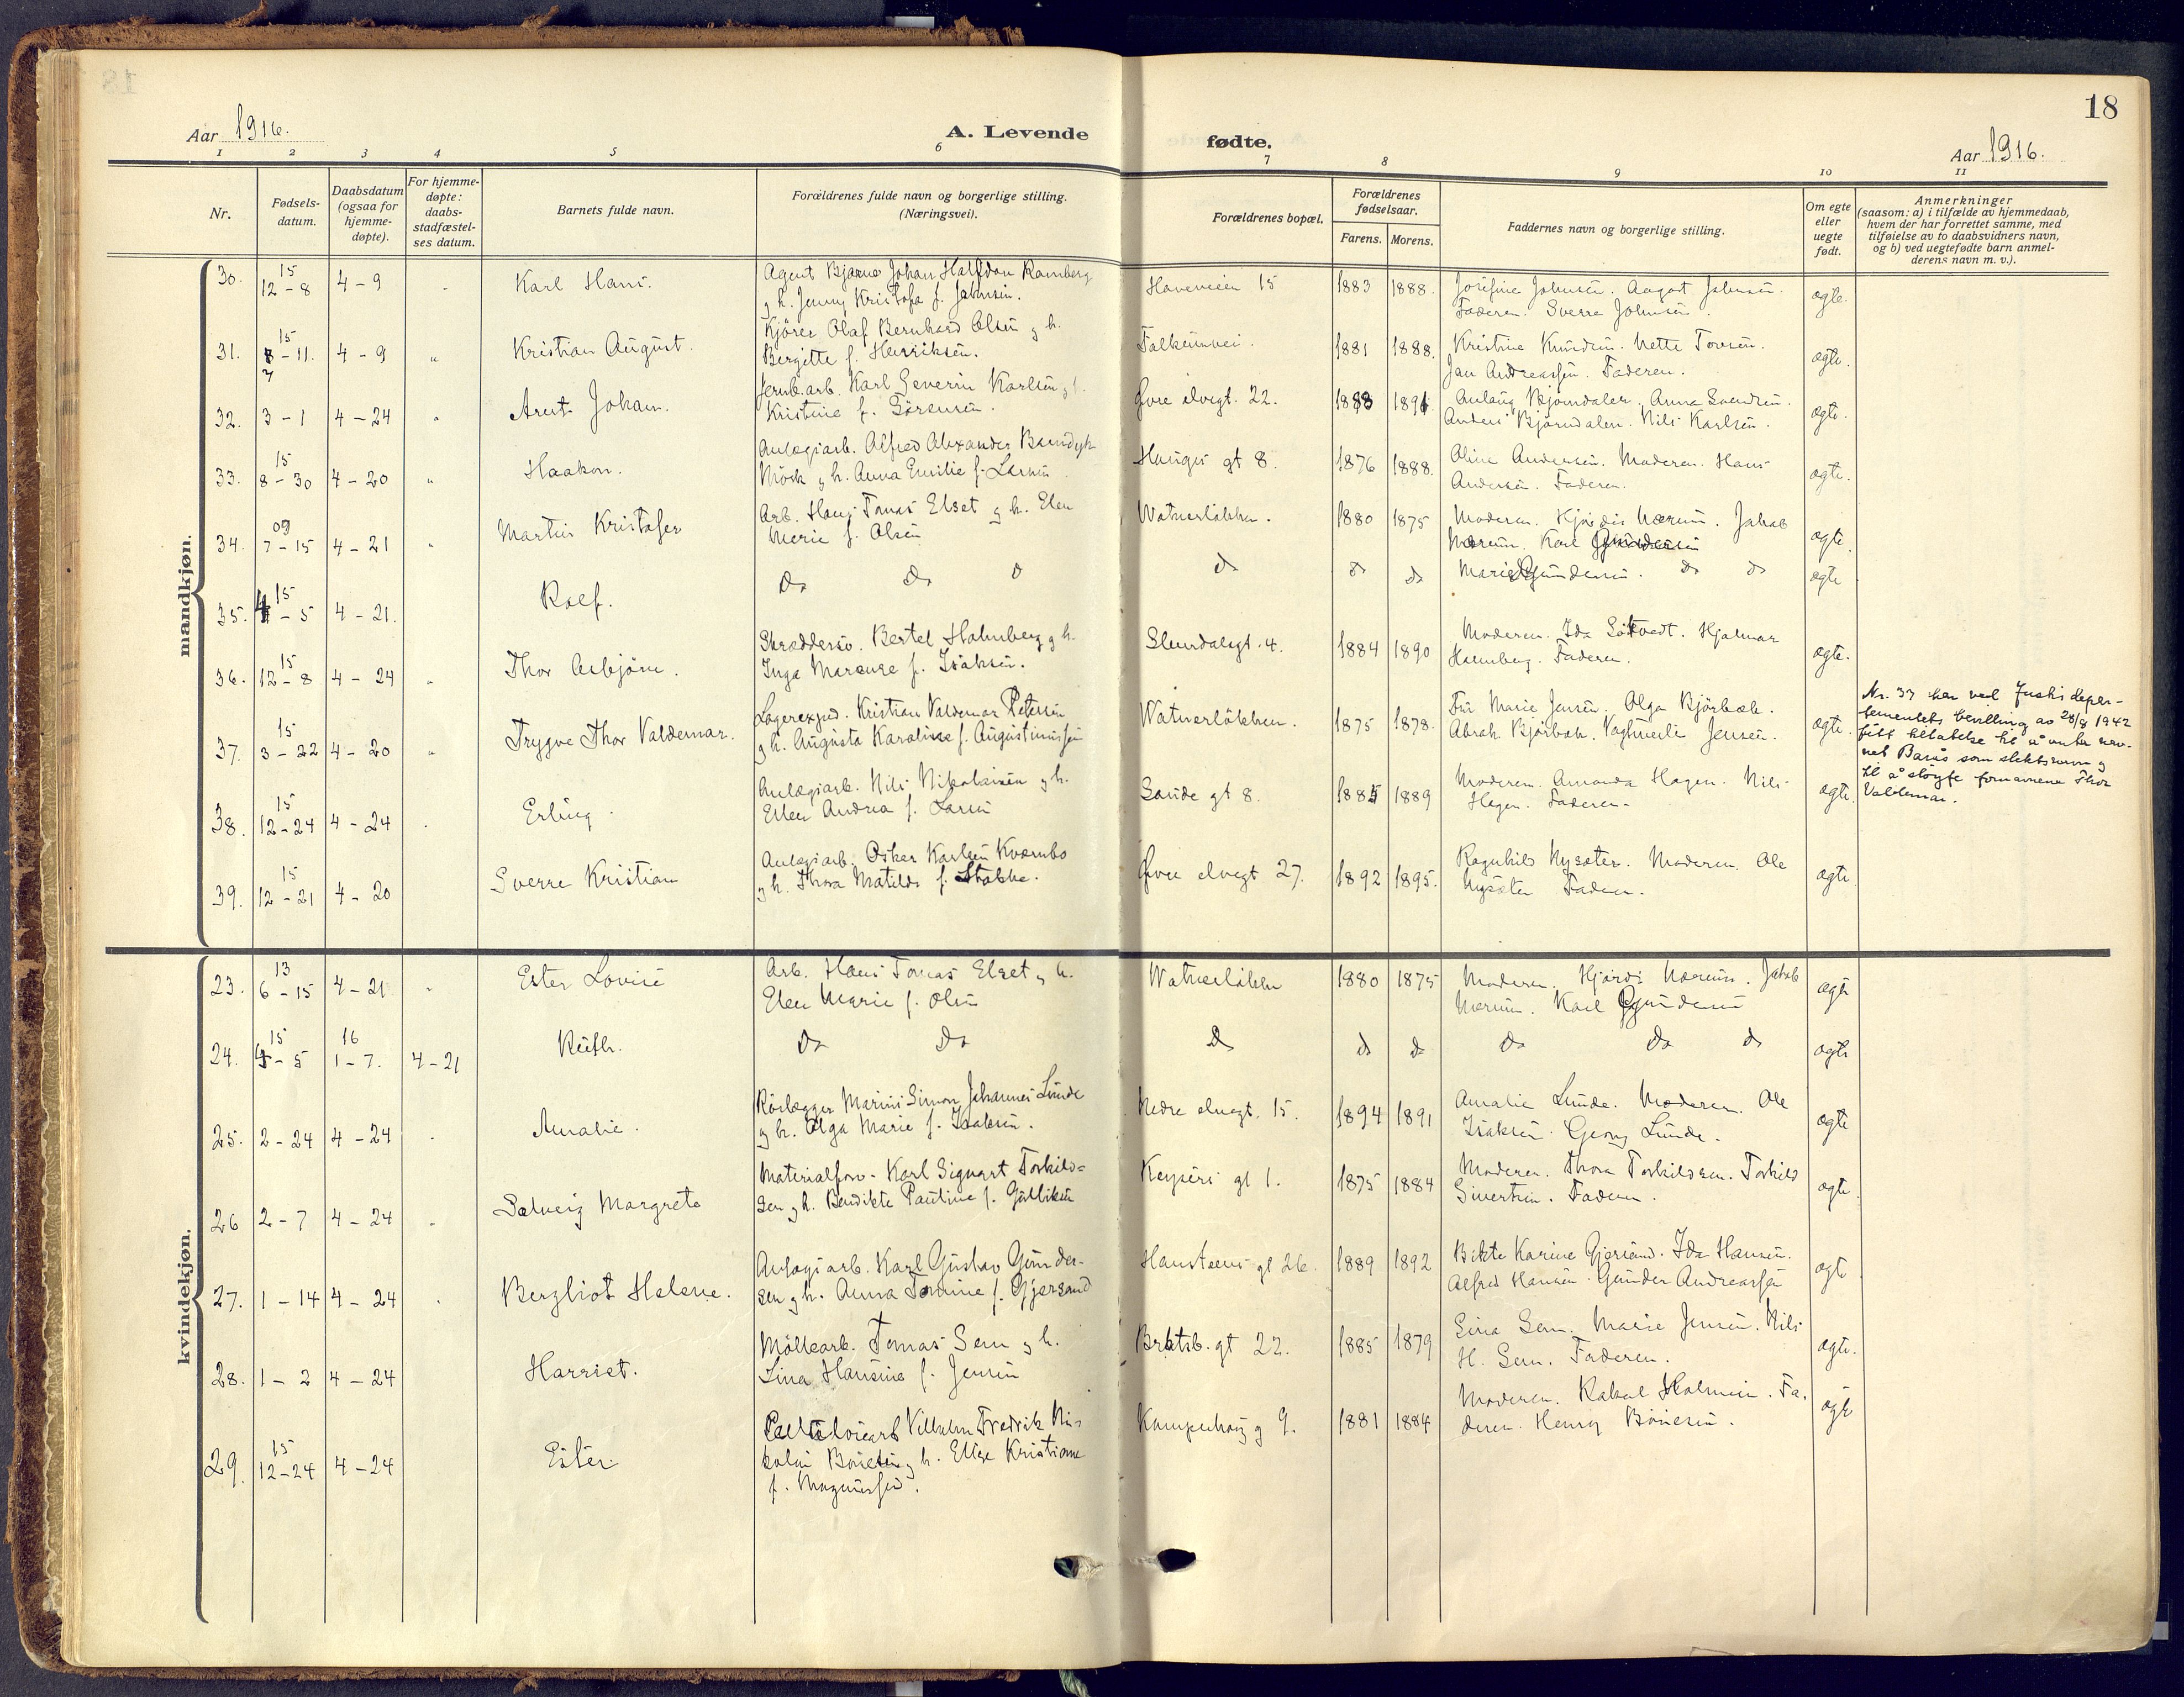 18
Aar 1916.
A. Levende fødte.
Aar 1916.
1 2 3 4 5 6 7 8 9 10 11
Nr.
Fødsels-datum.
Daabsdatum (ogsaa for hjemme-døpte).
For hjemme-døpte: daabs-stadfæstel-ses datum.
Barnets fulde navn.
Forældrenes fulde navn og borgerlige stilling. (Næringsvei).
Forældrenes bopæl.
Forældrenes fødselsaar.
Farens. Morens.
Faddernes navn og borgerlige stilling.
Om egte eller uegte født.
Anmerkninger
(saasom: a) i tilfælde av hjemmedaab,
hvem der har forrettet samme, med
tilføielse av to daabsvidners navn,
og b) ved uegtefødte barn anmel-
derens navn m. v.).
mandkjøn.
30. 15 12-8 4-9 Karl Hans. Agent Bjarne Johan Halfdan Ramberg
og h. Jenny Kristofa f. Johnsen. Haveveien 15 1883 1888. Josefine Johnsen. August Johnsen.
Faderen. Sverre Johnsen. ægte.
31. 15 -11. 4-9 " Kristian August. Kjörer Olaf Bernhard Olsen og h.
Bergitte f. Henriksen. Falkumvei. 1881 1888. Kristine Knudsen. Nette Tovsen.
Jan Andreassen. Faderen. ægte.
32. 3-1 4-24 " Arnt Johan. Jernb.arb. Karl Severin Karlsen og h.
Kristine f. Sörensen. Övre elvegt. 22. 1888 1891 Aslaug Bjørndalen. Anna Svendsen.
Anders Bjørndalen. Nils Karlsen. ægte.
33. 15 8-30 4-20 " Haakon. Anlægsarb. Alfred Alexander
og h. Anna Emilie f. Larsen Hauges gt 8. 1876 1888. Aline Andersen. Moderen. Hans
Andersen. Faderen. ægte.
34. 09 7-15 4-21 " Martin Kristofer Arb. Hans Tomas Elset og h. Elen
Merie f. Olsen Watnerløkken. 1880 1875 Moderen. Hjördis Nærum. Jakob
Nærum. Karl Gundersen ægte.
35. 15 4-5 4-21. Rolf. Do Do D do do do Marie Gundersen. do do ægte
36. 15 12-8 4-24 " Thor Asbjörn. Skræddersv. Bertel Holmberg og h.
Inga Marense f. Isaksen. Slemdalsgt. 4. 1884 1890 Moderen. Ida Sötvedt. Hjalmar
Holmberg. Faderen. ægte.
37. 15 3-22 4-20 " Trygve Thor Valdemar. Lagerexped. Kristian Valdemar Petersen
og h. Augusta Karoline f. Augustinussen Watnerløkken. 1875 1878. Fru Marie Jensen. Olga Bjørbæk.
Abrah. Bjørbæk. Vagtmester Jensen. ægte.
Nr. 37 har ved Justisdepar-
tementets bevilling av 28/8 1942
fått tillatelse til å anta nav-
net Barås som slektsnavn og
til å sløyfe fornavnene Thor
Valdemar.
38. 15 12-24 4-24 Erling. Anlægsarb. Nils Nikolaisen og h.
Ellen Andrea f. Larsen Sande gt 8. 1885 1889 Moderen. Amanda Hagen. Nils
Hagen. Faderen. ægte.
39. 15 12-21 4-20 Sverre Kristian Anlægsarb. Oskar Karlsen Kværnbo
og h. Thora Matilde f. Stokke. Övre elvegt 27. 1892 1895. Ragnhild Nysæter. Moderen. Ole
Nysæter Faderen. ægte
kvindekjøn.
23. 13 6-15 4-21 Ester Lovise Arb. Hans Tomas Elset og h.
Elen Marie f. Olsen Watnerløkken 1880 1875 Moderen. Hjördis Nærum. Jakob
Nærum. Karl Gundersen ægte
24. 15 -5 16 1-7. 4-21 Ruth. Do Do do do do do do do ægte
25. 2-24 4-24 Amalie. Rörlægger Marius Simon Johannes Lunde
og h. Olga Marie f. Isaksen. Nedre elvegt. 15. 1894 1891 Amalie Lunde. Moderen. Ole
Isaksen. Georg Lunde. ægte
26 2-7 4-24 Solveig Margrete Materialforv. Karl Sigvart Torkild-
sen og h. Bendikte Pauline f. Gulliksen Keysers gt 1. 1875 1884 Moderen. Thora Torkildsen. Torkild
Sivertsen. Faderen. ægte
27. 1-14 4-24 Bergliot Helene. Anlægsarb. Karl Gustav Gunder-
sen og h. Anna Tomine f. Gjersund Hansteens gt 26. 1889 1892 Karine Gjersund. Ida Hansen.
Alfred Hansen. Gunder Andreassen ægte
28. 1-2 4-24 Harriet. Möllearb. Tomas Sem og h.
Lina Hansine f. Jensen Bratsb. gt 22. 1885 1879 Sina Sem. Marie Jensen. Nils
H. Sem. Faderen. ægte.
29. 15 12-24 4-24 Ester. Vilhelm Fredrik Ni-
kolai og h. Elise Kristiane
f. Magnussen. Kampenhaug 9. 1881 1884 Moderen. Rakel Holmen. Fa-
deren. Henry Böriesen. ægte